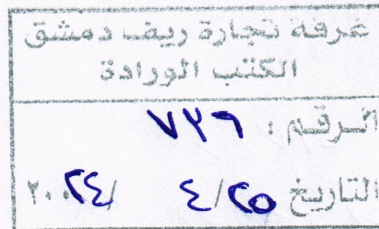 غرفة تجارة ريف دمشق
الكتب الورادة
الرقم : ٧٣٦
التاريخ ٢٥/٤ /٢٠٠٢٤